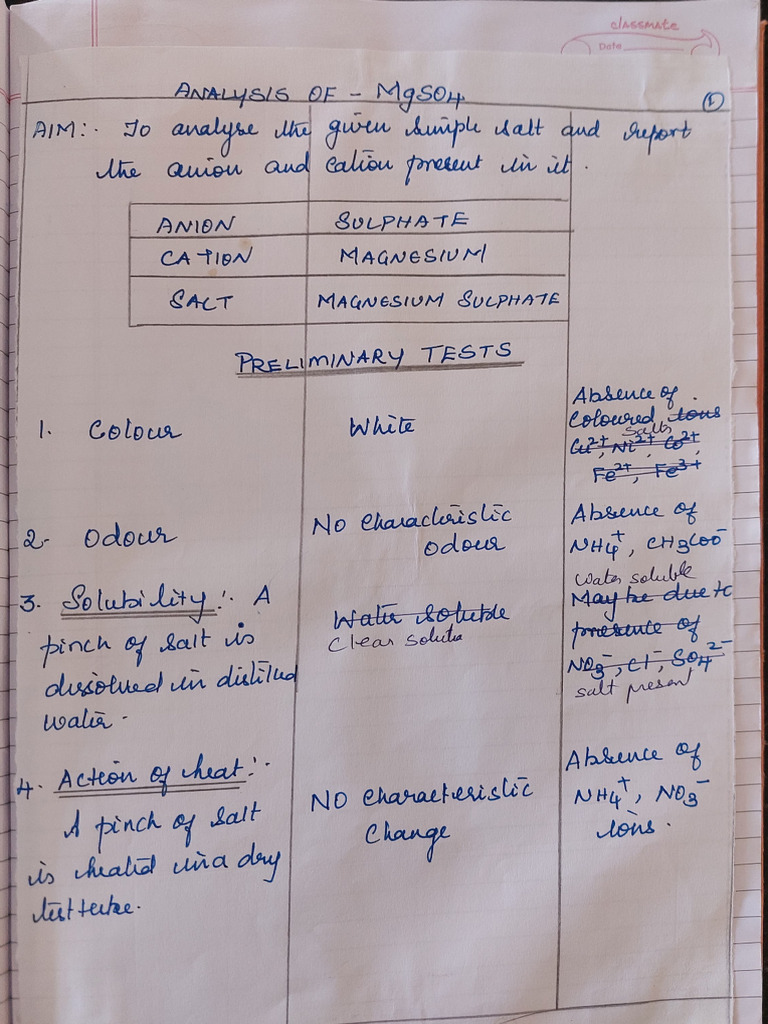 classmate
Date
ANALYSIS OF - MgSO4
1
AIM:- To analyse the given simple salt and report
the anion and cation present in it.
ANION SULPHATE
CATION MAGNESIUM
SALT MAGNESIUM SULPHATE
PRELIMINARY TESTS
1. Colour
White
Absence of
Coloured ions
salts
Cu²⁺, Ni²⁺, Co²⁺,
Fe²⁺, Fe³⁺
2. Odour
No characteristic
odour
Absence of
NH4⁺, CH3COO⁻
3. Solubility:- A
pinch of salt is
dissolved in distilled
water.
Water soluble
clear solutio
water soluble
May be due to
presence of
NO3⁻, Cl⁻, SO4²⁻
salt present
4. Action of heat:-
A pinch of salt
is heated in a dry
test tube.
NO characteristic
change
Absence of
NH4⁺, NO3⁻
ions.